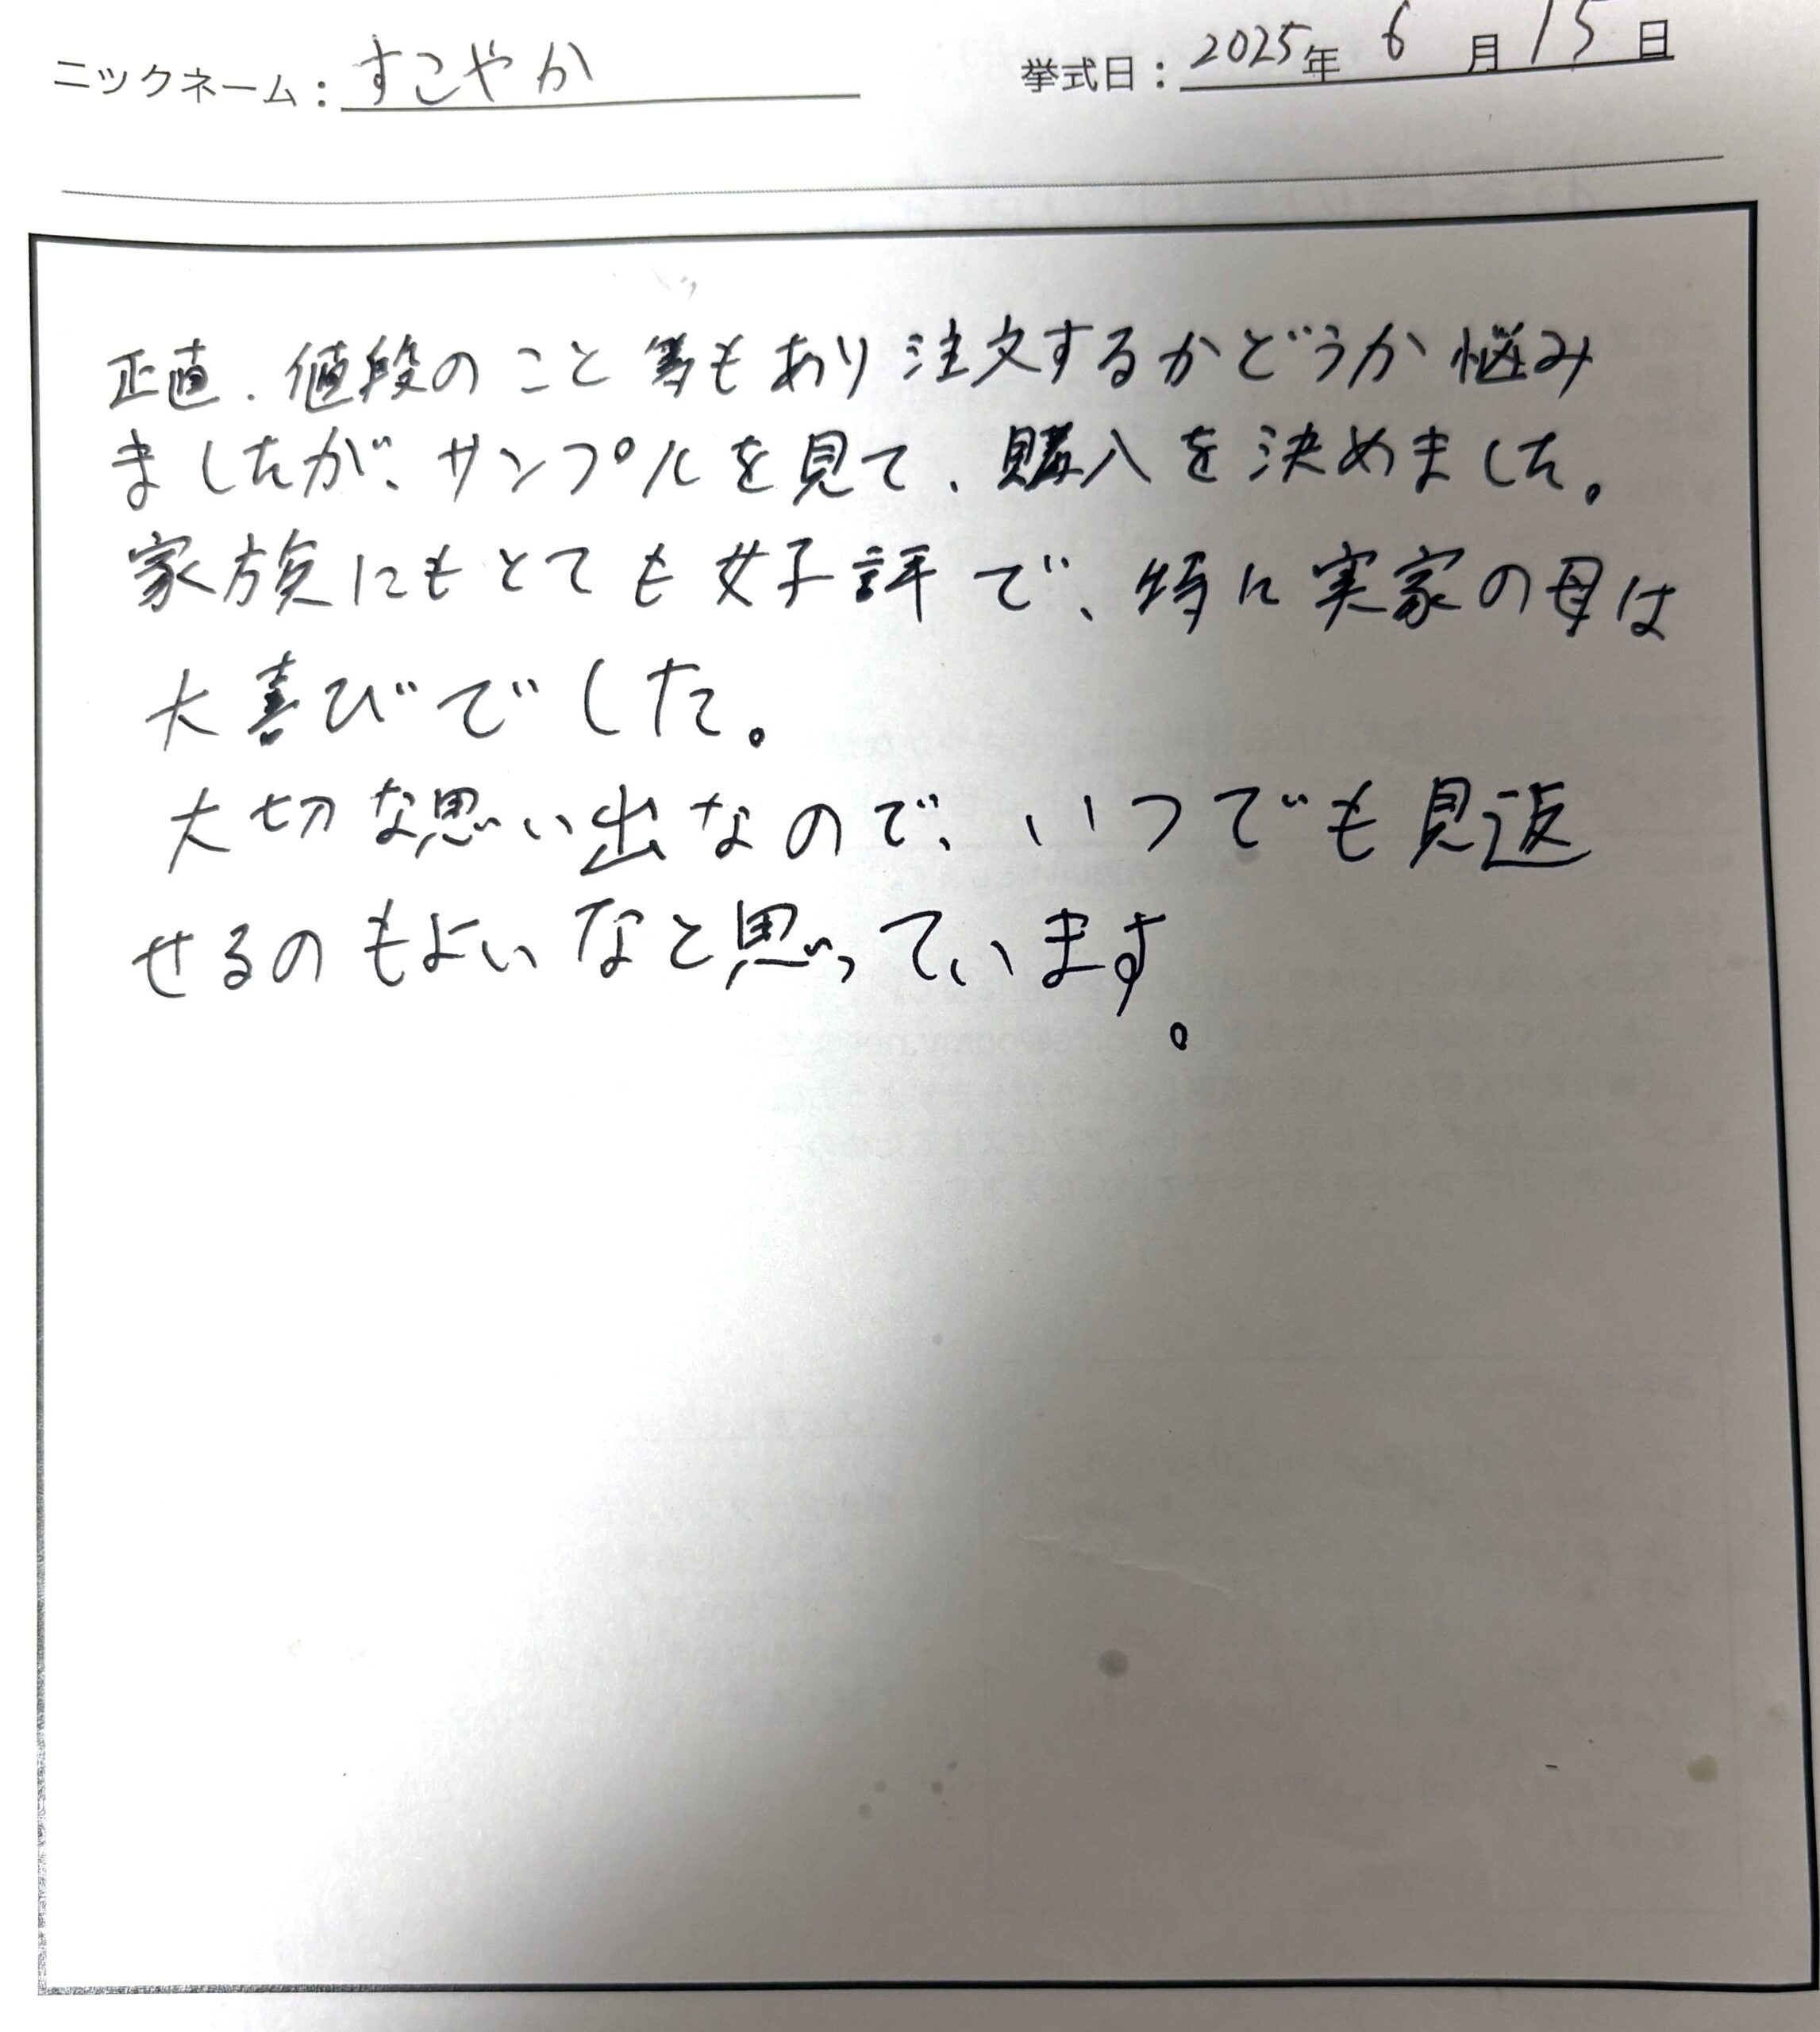 ニックネーム：すこやか 挙式日：2025年 6月 15日
正直、値段のこと等もあり注文するかどうか悩み
ましたが、サンプルを見て、購入を決めました。
家族にもとても好評で、特に実家の母は
大喜びでした。
大切な思い出なので、いつでも見返
せるのもよいなと思っています。